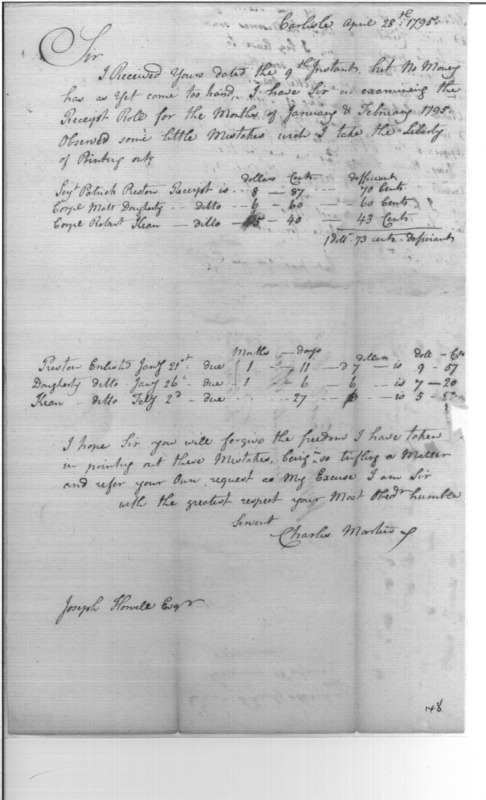 Carlisle April 28th 1795.
Sir
I Received Yours dated the 9th Instant, but No Money
has as Yet come too hand, I have Sir in examining the
Receipt Roll for the Months of January & February 1795.
Observed some little Mistakes wich I take the Liberty
of Pointing out,
dollars Cents defficiant
Serjt Patrick Preston Receipt is - 8 - 87 - 70 Cents
Corpl Matt Dougherty - ditto - 6 - 60 - 60 Cents
Corpl Robert Kean - ditto - 5 - 40 - 43 Cents
1 doll. 73 cents defficiant
Months - days dollars doll - Cts
Preston Enlisted Jany 21st due 1 - 11 - 7 - is 9 - 57
Dougherty ditto - Jany 26th due 1 - 6 - 6 - is 7 - 20
Kean - ditto Feby 2d - due 27 - - is 5 -
I hope Sir you will forgive the freedom I have taken
in pointing out these Mistakes, being so trifling a Matter
and refer your Own request as My Excuse I am Sir
with the greatest respect your Most Obedt humble
Servent
Charles Martin
Joseph Howell Esqr
148